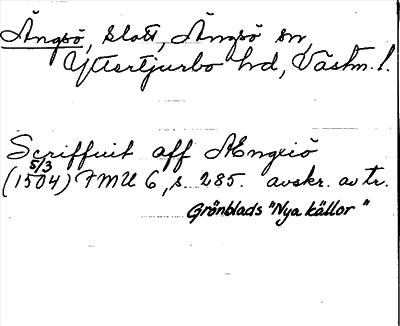 Ängsö, slott, Ängsö sn,
Yttertjurbo hd, Västm. l.
Scriffuit aff Ængxiö
5/3
(1504) FMU 6, s. 285. avskr. av tr.
Grönblads "Nya källor"